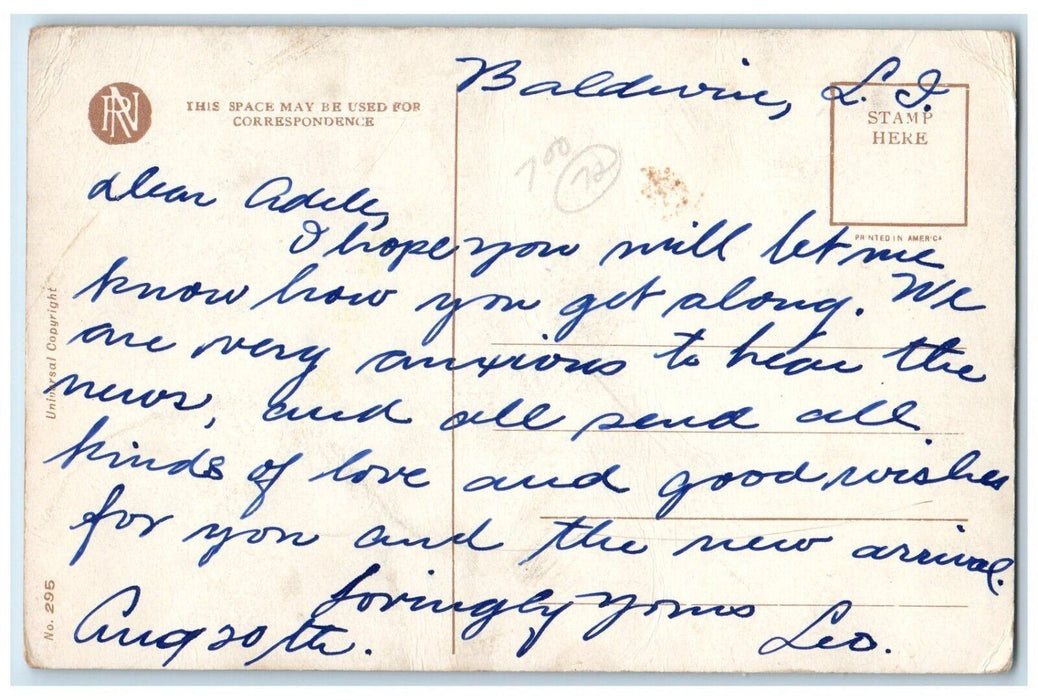 Baldwin, L. I.
RN
THIS SPACE MAY BE USED FOR
CORRESPONDENCE
STAMP
HERE
PRINTED IN AMERICA
Dear Adele,
I hope you will let me
know how you get along. We
are very anxious to hear the
news, and all send all
kinds of love and good wishes
for you and the new arrival.
Lovingly yours
Leo.
Aug 20th.
Universal Copyright
No. 295